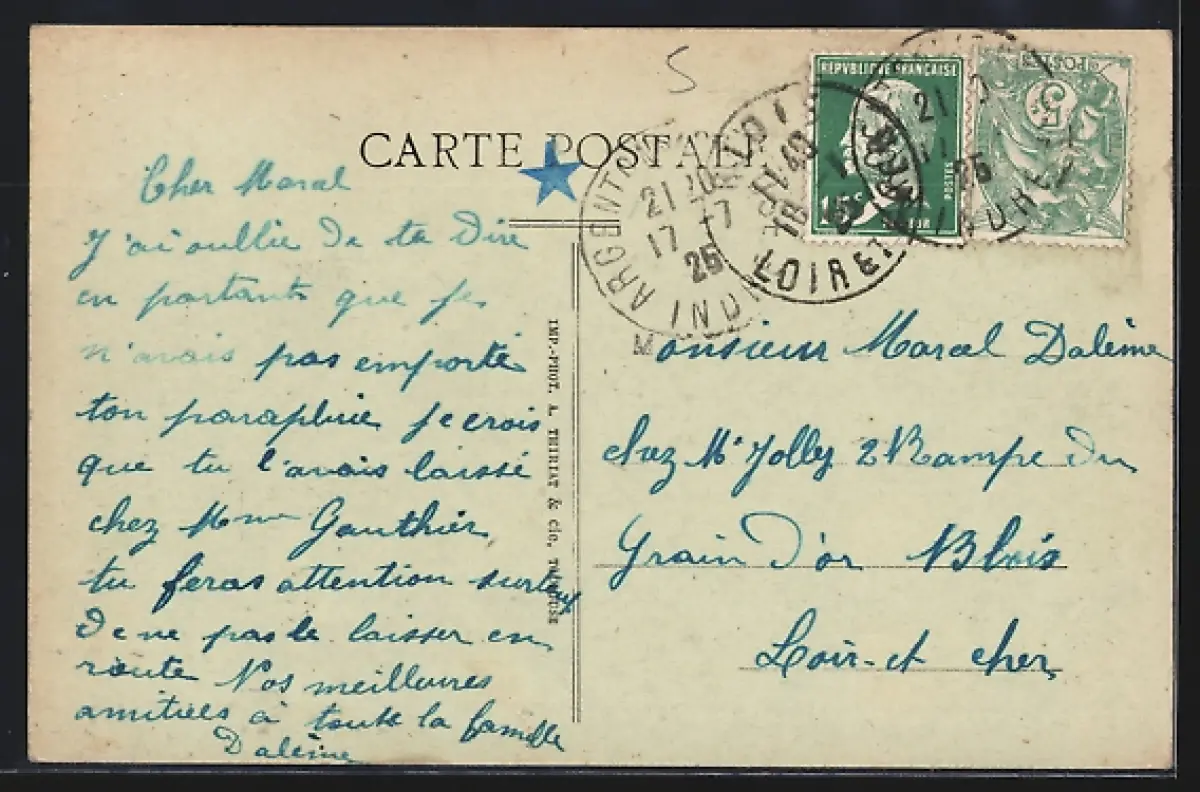 5
CARTE POSTALE
REPVBLIQUE FRANÇAISE
POSTES
POSTES
5
21
25
LOIRET
21 20
17 -7
25
Cher Marcel
J'ai oublié de te dire
en partant que je
n'avais pas emporté
ton parapluie je crois
que tu l'avais laissé
chez Mme Gauthier
tu feras attention surtout
de ne pas le laisser en
route Nos meilleures
amitiés à toute la famille
Dalème
IMP.-PHOT. A. THIRIAT & Cie, TOULOUSE
Monsieur Marcel Dalème
chez Mr Jolley 2 Rampe du
Grain d'or Blois
Loir-et cher